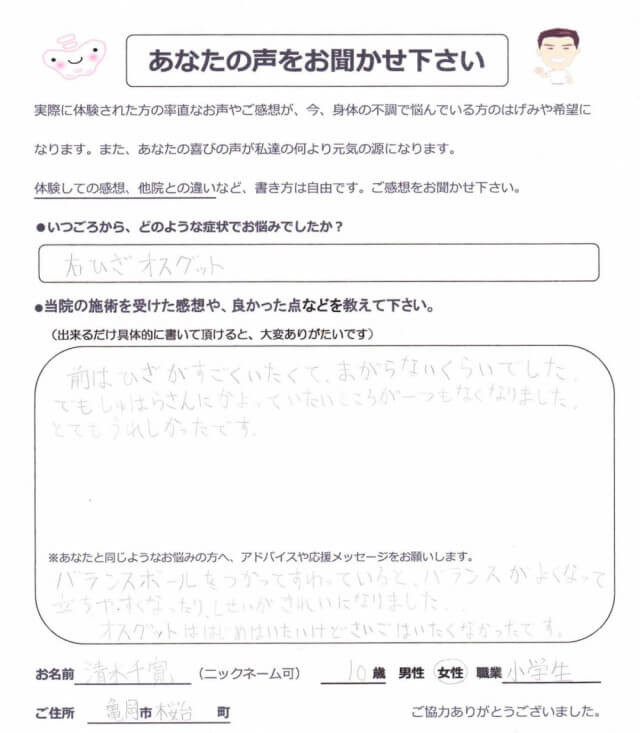 あなたの声をお聞かせ下さい
実際に体験された方の率直なお声やご感想が、今、身体の不調で悩んでいる方のはげみや希望に
なります。また、あなたの喜びの声が私達の何より元気の源になります。
体験しての感想、他院との違いなど、書き方は自由です。ご感想をお聞かせ下さい。
●いつごろから、どのような症状でお悩みでしたか？
右ひざオスグット
●当院の施術を受けた感想や、良かった点などを教えて下さい。
（出来るだけ具体的に書いて頂けると、大変ありがたいです）
前はひざがすごくいたくて、まがらないくらいでした。
でもしゅはらさんにかよっていたいところが一つもなくなりました。
とてもうれしかったです。
※あなたと同じようなお悩みの方へ、アドバイスや応援メッセージをお願いします。
バランスボールをつかってすわっていると、バランスがよくなって
立ちやすくなったり、しせいがきれいになりました。
オスグットははじめはいたいけどさいごはいたくなかったです。
お名前 清水千寛 （ニックネーム可） 10歳 男性 女性 職業 小学生
ご住所 亀岡市桜台 町 ご協力ありがとうございました。